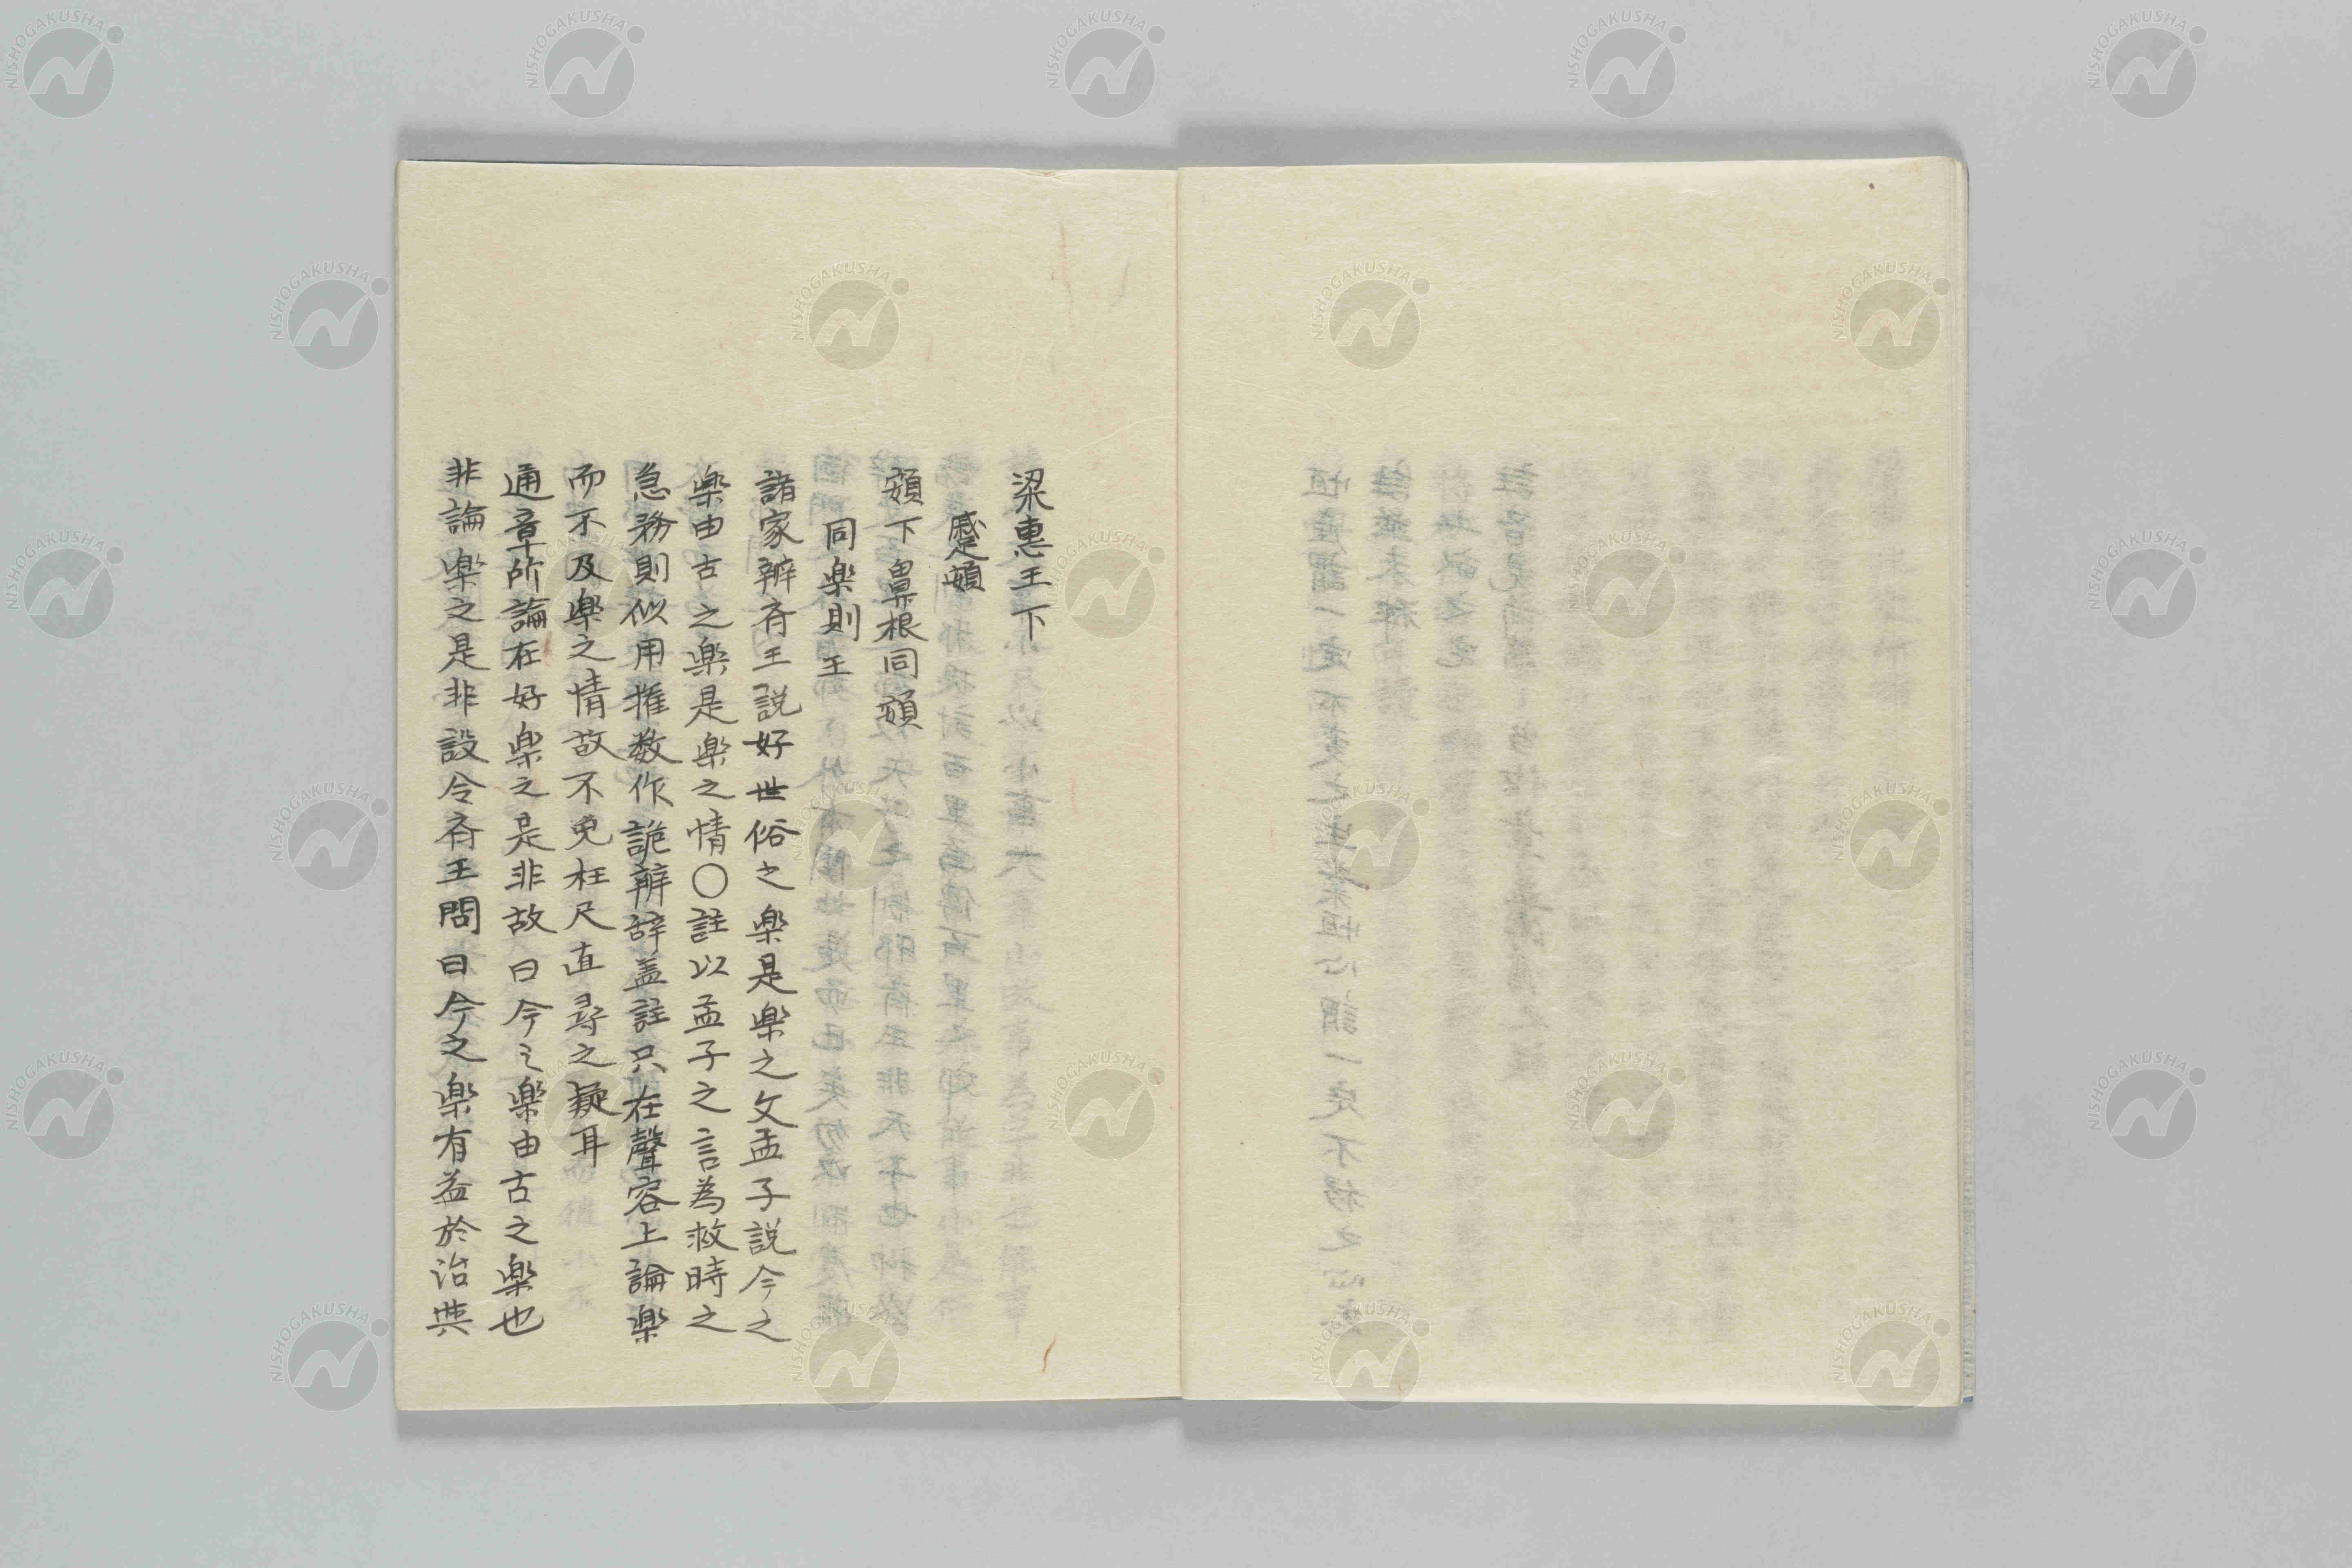 梁惠王下
蹙頞
頞下鼻根同頞
同楽則王
諸家辨斉王説好世俗之楽是楽之文孟子説今之
楽由古之楽是楽之情〇註以孟子之言為救時之
急務則似用推数作詭辨辞盖註只在聲容上論楽
而不及楽之情故不免枉尺直尋之疑耳
通章所論在好楽之是非故曰今之楽由古之楽也
非論楽之是非設令斉王問曰今之楽有益於治与
NISHOGAKUSHA